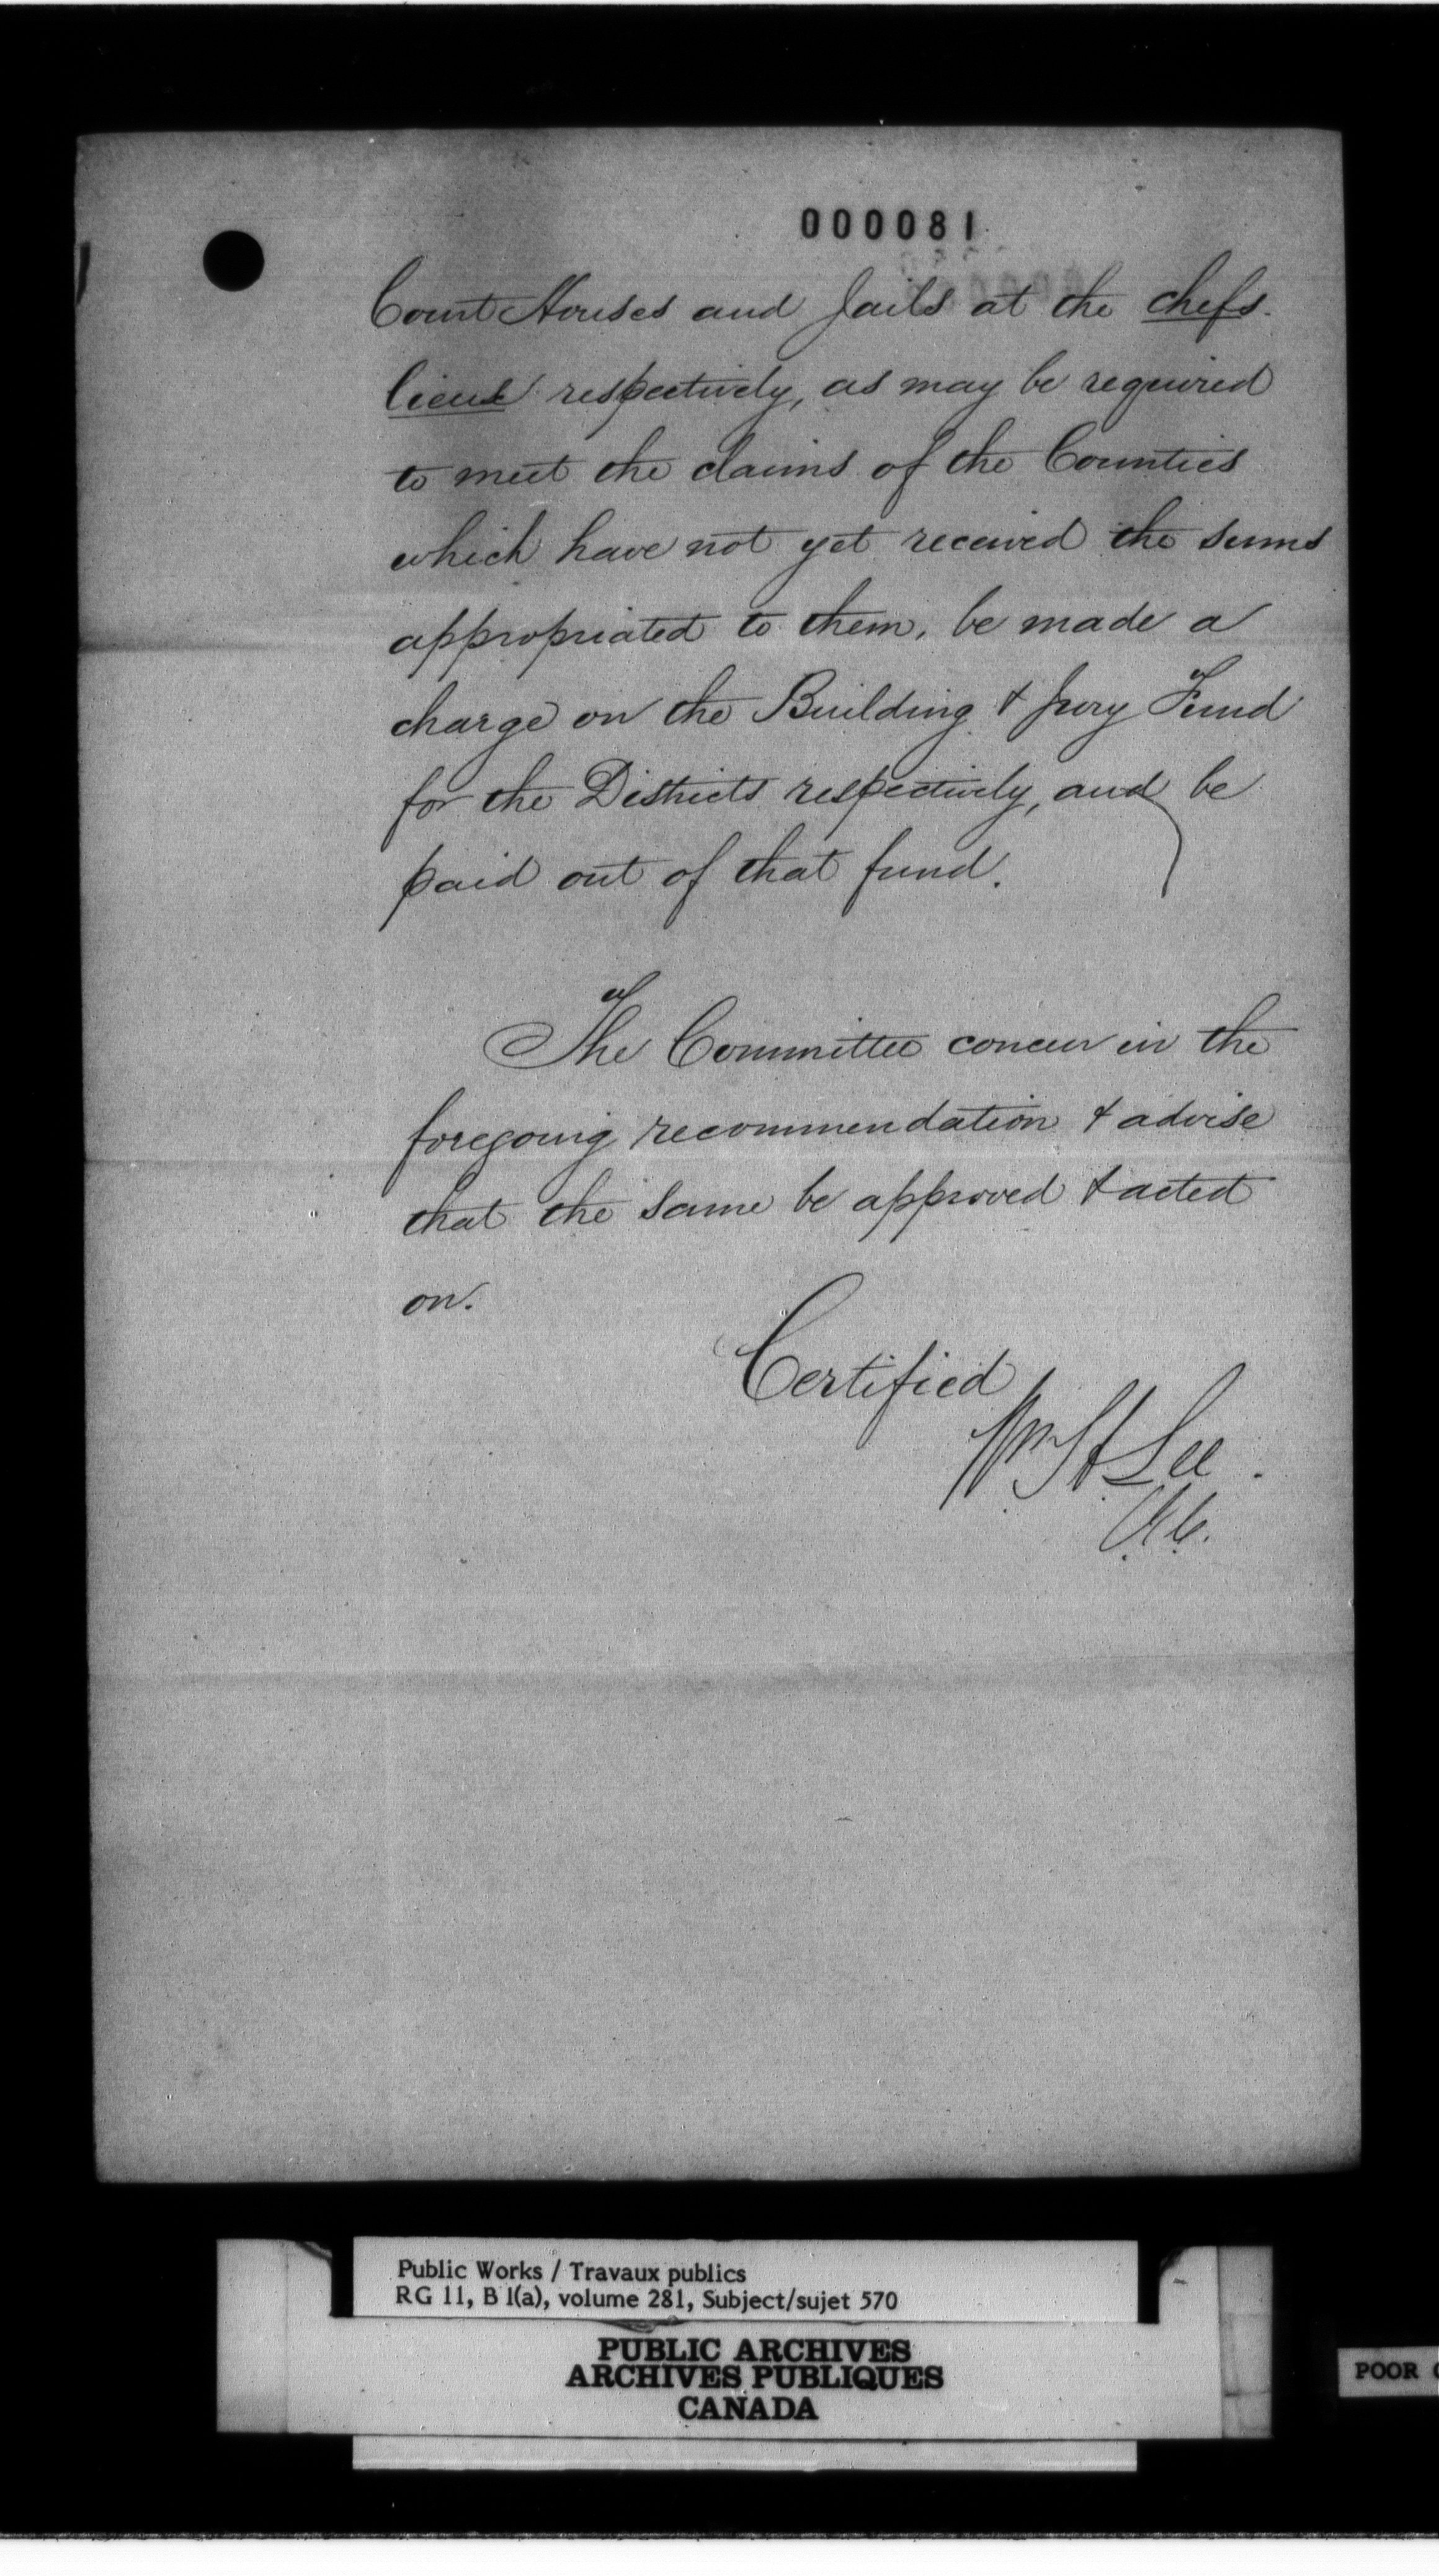 000081
Court Houses and Jails at the chefs-
lieux respectively, as may be required
to meet the claims of the Counties
which have not yet received the sums
appropriated to them, be made a
charge on the Building & Jury Fund
for the Districts respectively, and be
paid out of that fund.
The Committee concur in the
foregoing recommendation & advise
that the same be approved & acted
on.
Certified
Wm H Lee.
Public Works / Travaux publics
RG 11, B 1(a), volume 281, Subject/sujet 570
PUBLIC ARCHIVES
ARCHIVES PUBLIQUES
CANADA
POOR